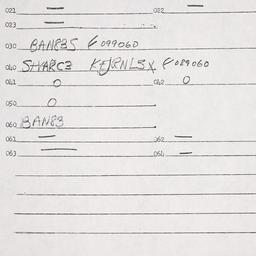 021 — 022 —
023 —
030 BAN83S F099060
040 SHARC3 F089060
041 0 042 0
050 0
060 BAN83
061 — 062 —
063 — 064 —